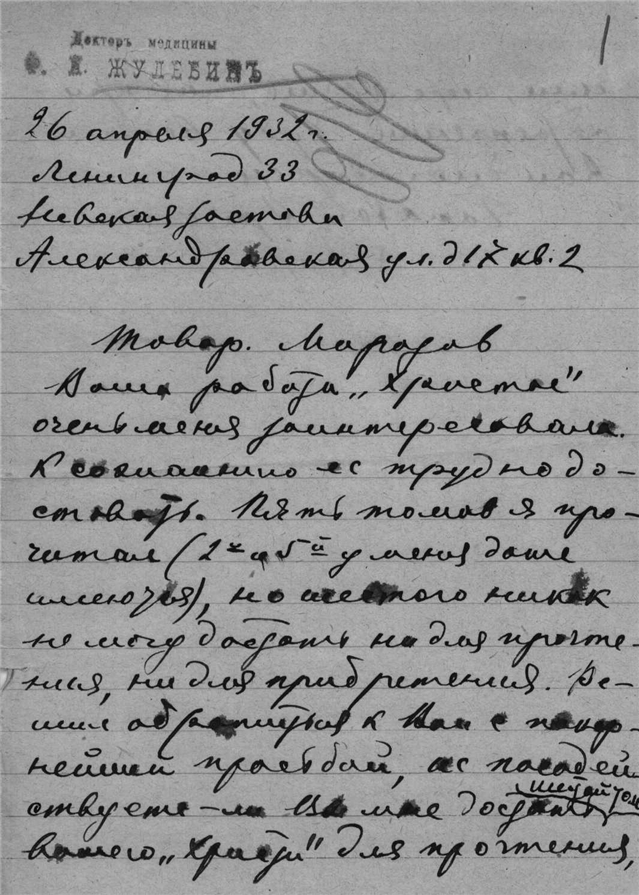 1
Докторъ медицины
Ф. И. ЖУЛЕБИНЪ
26 апреля 1932 г.
Ленинград 33
Невская застава
Александровская ул. д 17 кв. 2
Товар. Морозов
Ваша работа „Христос"
очень меня заинтересовала.
К сожалению ее трудно до-
ставать. Пять томов я про-
читал (2й и 5й у меня даже
имеются), но шестого никак
не могу достать ни для прочте-
ния, ни для прибретения. Ре-
шил обратиться к Вам с покор-
нейшей просьбой, не посодей
ствуете-ли Вы мне достать шестой том
вашего „Христа" для прочтения,